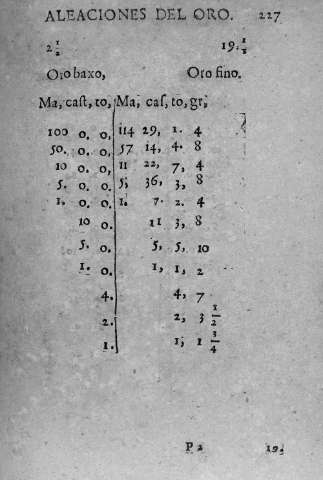 ALEACIONES DEL ORO. 227
2 1/2 19. 1/2
Oro baxo, Oro fino.
Ma, cast, to, Ma, cas, to, gr,
100 0. 0. 114 29, 1. 4
50. 0. 0, 57 14, 4. 8
10 0. 0, 11 22, 7, 4
5. 0. 0. 5; 36, 3, 8
1. 0. 0, 1. 7. 2. 4
10 0. 11 3, 8
5. 0. 5, 5, 10
1. 0. 1, 1, 2
4. 4, 7
2. 2, 3 1/2
1. 1; 1 3/4
P 2 19.